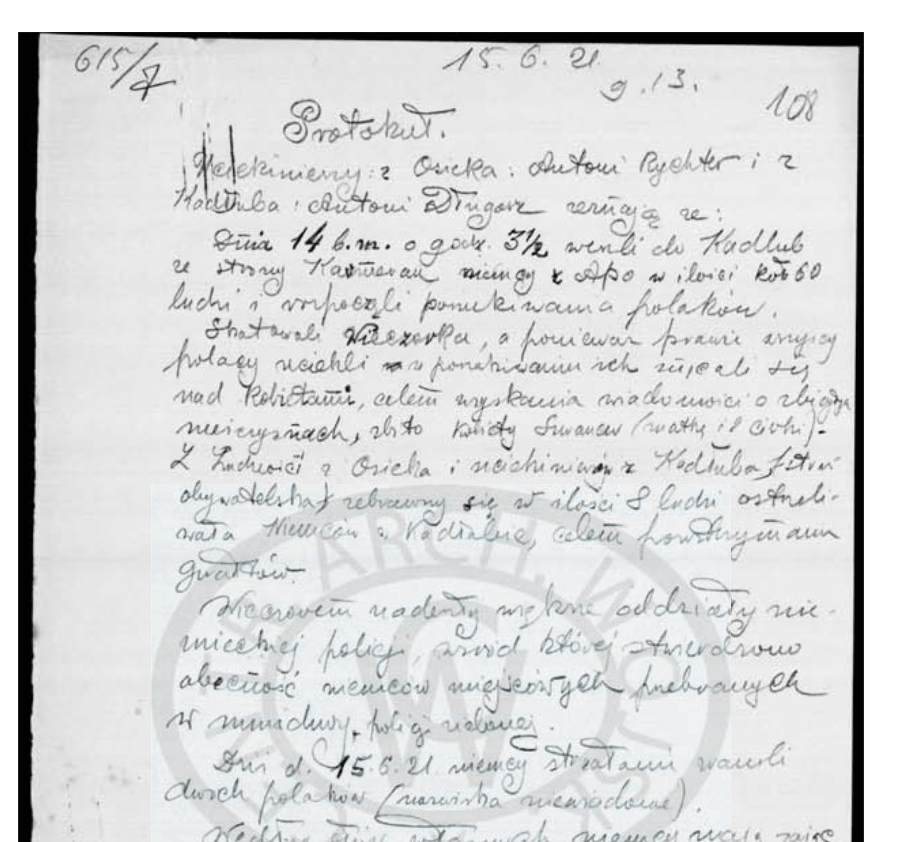 615/7
15. 6. 21.
g. 13.
108
Protokuł.
z Osiecka: Antoni Rychter i z
Kadłuba: Antoni Długosz zeznają że:
Dnia 14 b.m. o godz. 3½ weszli do Kadłub
ze strony niemcy z Apo w ilości koło 60
ludzi i rozpoczęli poszukiwania polaków.
Skatowali Wieczorka, a ponieważ prawie wszyscy
polacy uciekli w poszukiwaniu ich znęcali się
nad kobietami, celem wyskania wiadomości o zbiegłych
męszczyznach, zbito kobiety (matkę i 2 córki).
Z Ludności z Osiecka i uciekinierów z Kadłuba, straż
obywatelska, zebrawszy się w ilości 8 ludzi ostrzeli-
wała Niemców w Kadłubie, celem powstrzymania
gwałtów.
Wieczorem nadeszły większe oddziały nie-
mieckiej policji, wśród której stwierdzono
obecność niemców miejscowych przebranych
w mundury policji zielonej.
Dziś d. 15.6.21. niemcy strzałami ranili
dwóch polaków (nazwiska niewiadome).
niemcy mają zająć